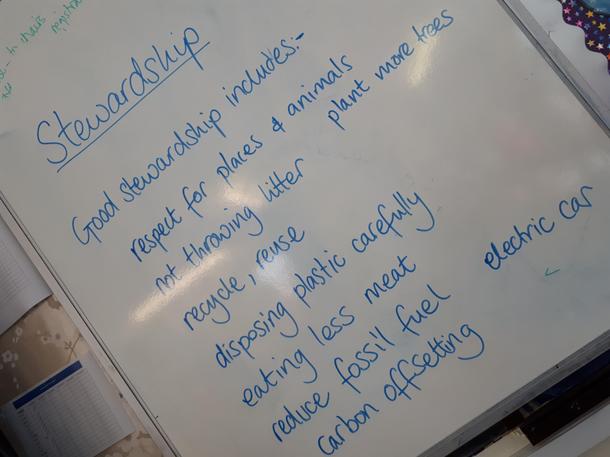 Stewardship
Good stewardship includes:-
respect for places & animals
plant more trees
not throwing litter
recycle, reuse
disposing plastic carefully
eating less meat
electric car
reduce fossil fuel
carbon offsetting